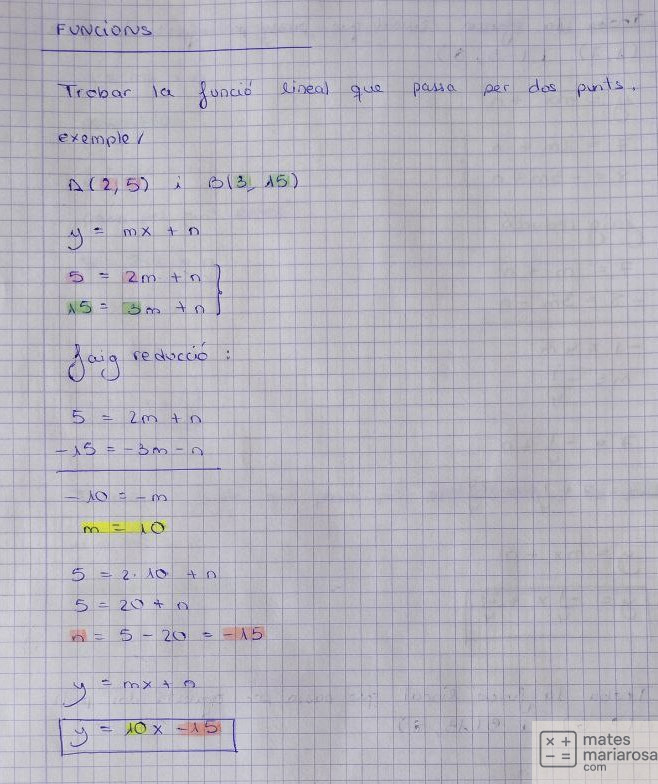 FUNCIONS
Trobar la funció lineal que passa per dos punts.
exemple/
A(2,5) i B(3,15)
y = mx + n
5 = 2m + n
15 = 3m + n
faig reducció:
5 = 2m + n
-15 = -3m - n
-10 = -m
m = 10
5 = 2·10 + n
5 = 20 + n
n = 5 - 20 = -15
y = mx + n
y = 10x -15
mates
mariarosa
com